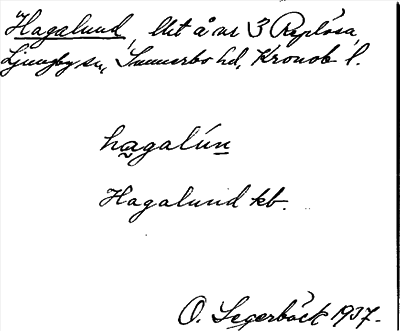 Hagalund, lht å nr 3 Replösa
Ljungby sn, Sunnerbo hd, Kronob l.
hagalún
Hagalund kb.
O. Segerbäck 1937.